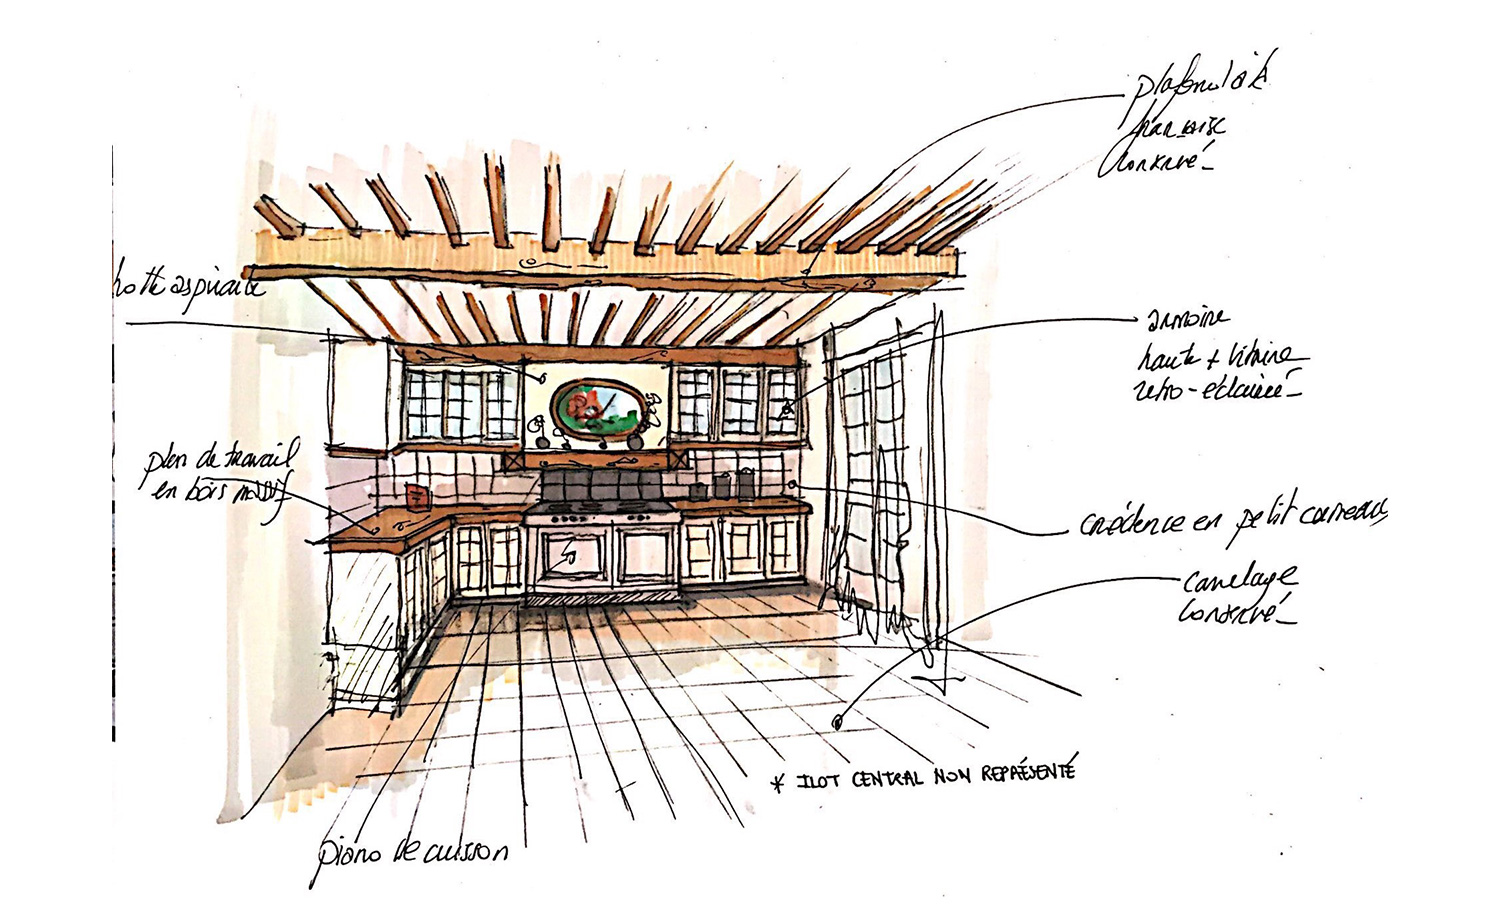 plafond à la
française
conservé_
hotte aspirante
armoire
haute + vitrine
rétro-éclairée_
plan de travail
en bois massif
crédence en petit carreaux
carrelage
conservé_
* ILOT CENTRAL NON REPRÉSENTÉ
piano de cuisson